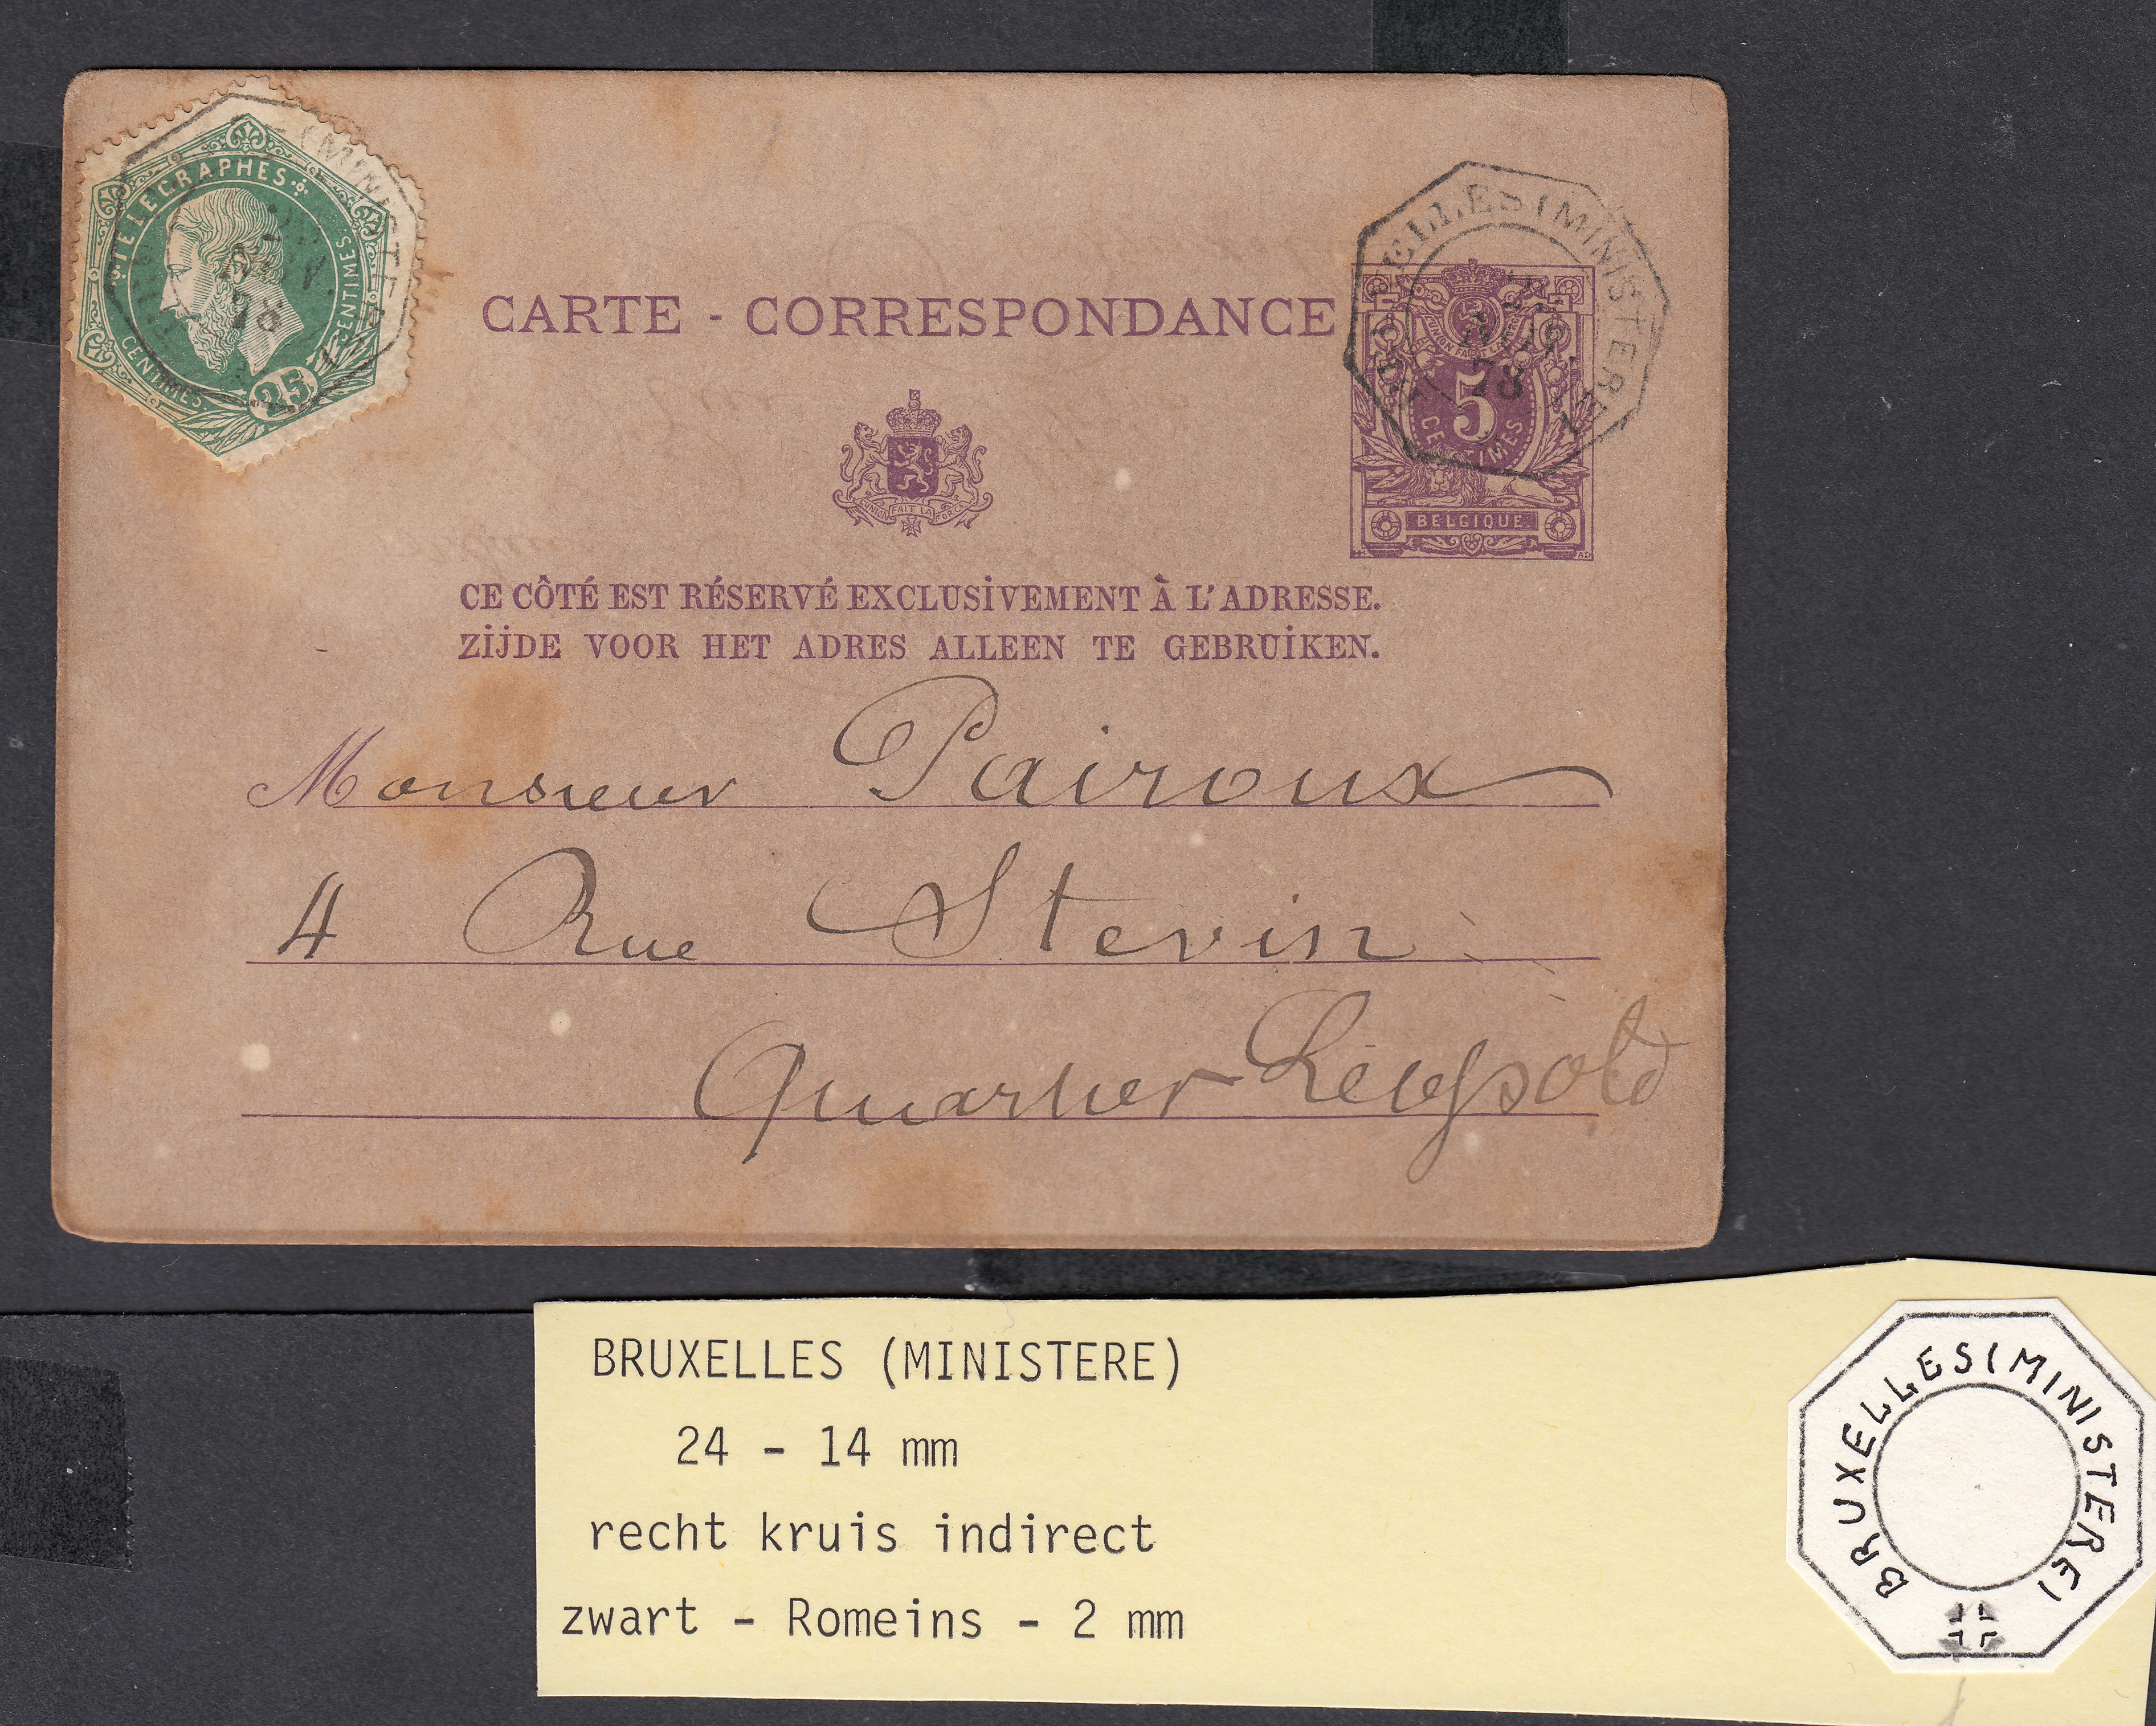 TELEGRAPHES
CENTIMES. 25 CENTIMES
(MINISTER
NOV.
78
CARTE - CORRESPONDANCE
ELLES (MINISTERE)
NOV.
78
UNION FAIT LA
5
CENTIMES
BELGIQUE
UNION FAIT LA FORCE
CE CÔTÉ EST RÉSERVÉ EXCLUSIVEMENT À L'ADRESSE.
ZIJDE VOOR HET ADRES ALLEEN TE GEBRUIKEN.
Monsieur Pairoux
4 Rue Stevin
Quartier Léopold
BRUXELLES (MINISTERE)
24 - 14 mm
recht kruis indirect
zwart - Romeins - 2 mm
BRUXELLES (MINISTERE)